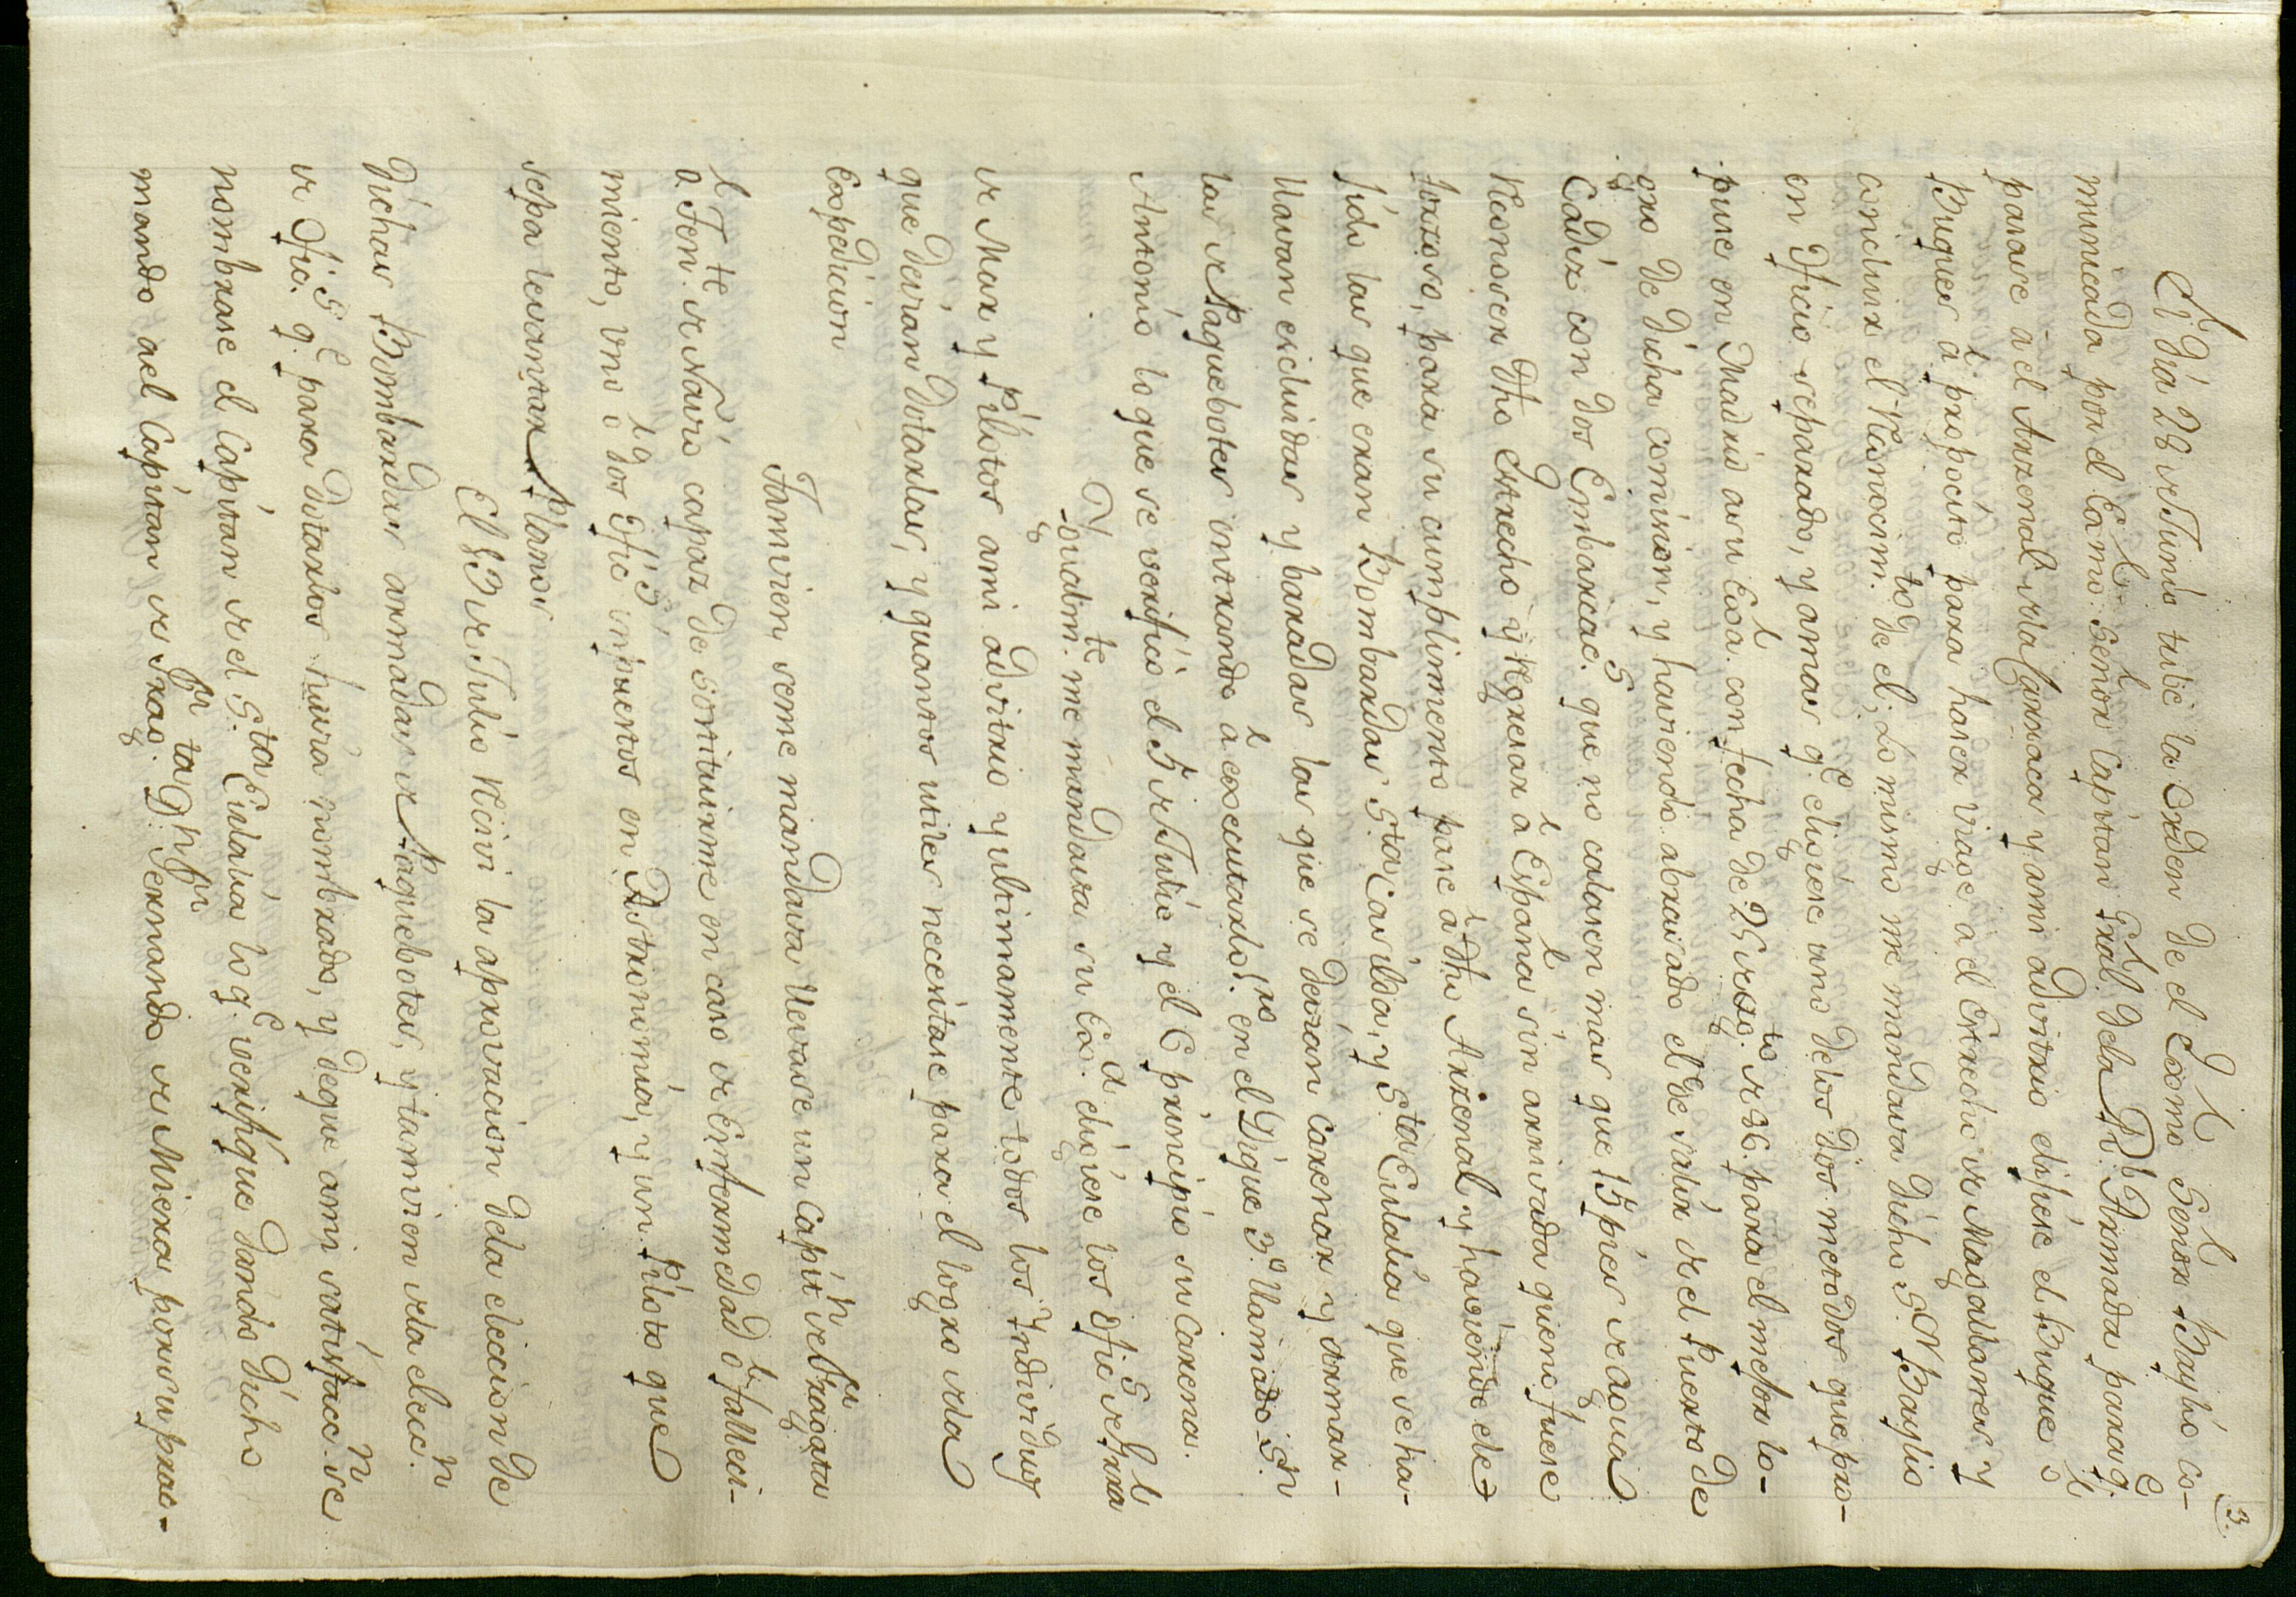 3.
El Dia 28 de Junio tube la Orden de el Exmo Señor Baylio co-
municada por el Exmo. Señor Capitan Gral. dela Rl. Armada para q.e
pasase ael Arzenal dela Carraca y ami advitrio elijiese el Buque o
Buques á propocito para hacer viage a el Estrecho de Magallanes y
concluir el Reconocim.to de el; Lo mismo me mandava dicho S.or Baylio
en Oficio separado, y amas q.e elijiese uno delos Dos metodos que pro-
puse en Madrid asu Exa. con fecha de 25 de Ag.to de 86. para el mejor lo-
gro de Dicha comision, y haviendo abrasado el de salir de el Puerto de
Cadiz con dos Embarcac.s que no calasen mas que 15 pies de agua
Reconocer dho Estrecho y Regresar á España sin arrivada que no fuese
forzoso, para su cumplimento pasé á dho Arzenal y haviendo ele-
jido las que eran Bombardas S.ta Casilda, y S.ta Eulalia que se ha-
llavan escluidas y paradas las que se devian Carenar y armar-
las de Paquebotes entrando á executarlo en el Dique 3.o llamado S.n
Antonio lo que se verificó el 5 de Julio y el 6 principio su Carena.
Ygualm.te me mandava su Ex.a elijiese los Ofic.s de Grra
de Mar y Pilotos ami advitrio y ultimamente todos los Yndividuos
que devian Dotarlas, y quantos utiles necesitase para el logro dela
Expedicion
Tamvien seme mandava llevase un Capit.n de Fragata
ó Ten.te de Navio capaz de sostituirme en caso de Enfermedad ó fallesi-
miento, uno ó dos Ofic.s inpuestos en Astronomia, y un Piloto que
sepa levantar Planos
El 13 de Julio Reciví la aprovacion dela eleccion de
Dichas Bombardas armadas de Paquebotes, y tamvien dela elecc.n
de Ofic.s q.e para dotarlos havia nombrado, y deque ami satisfacc.n se
nombrase el Capitan de el S.ta Eulalia lo q.e verifique dando Dicho
mando ael Capitan de Frag.ta D.n Fernando de Miera por su prac-